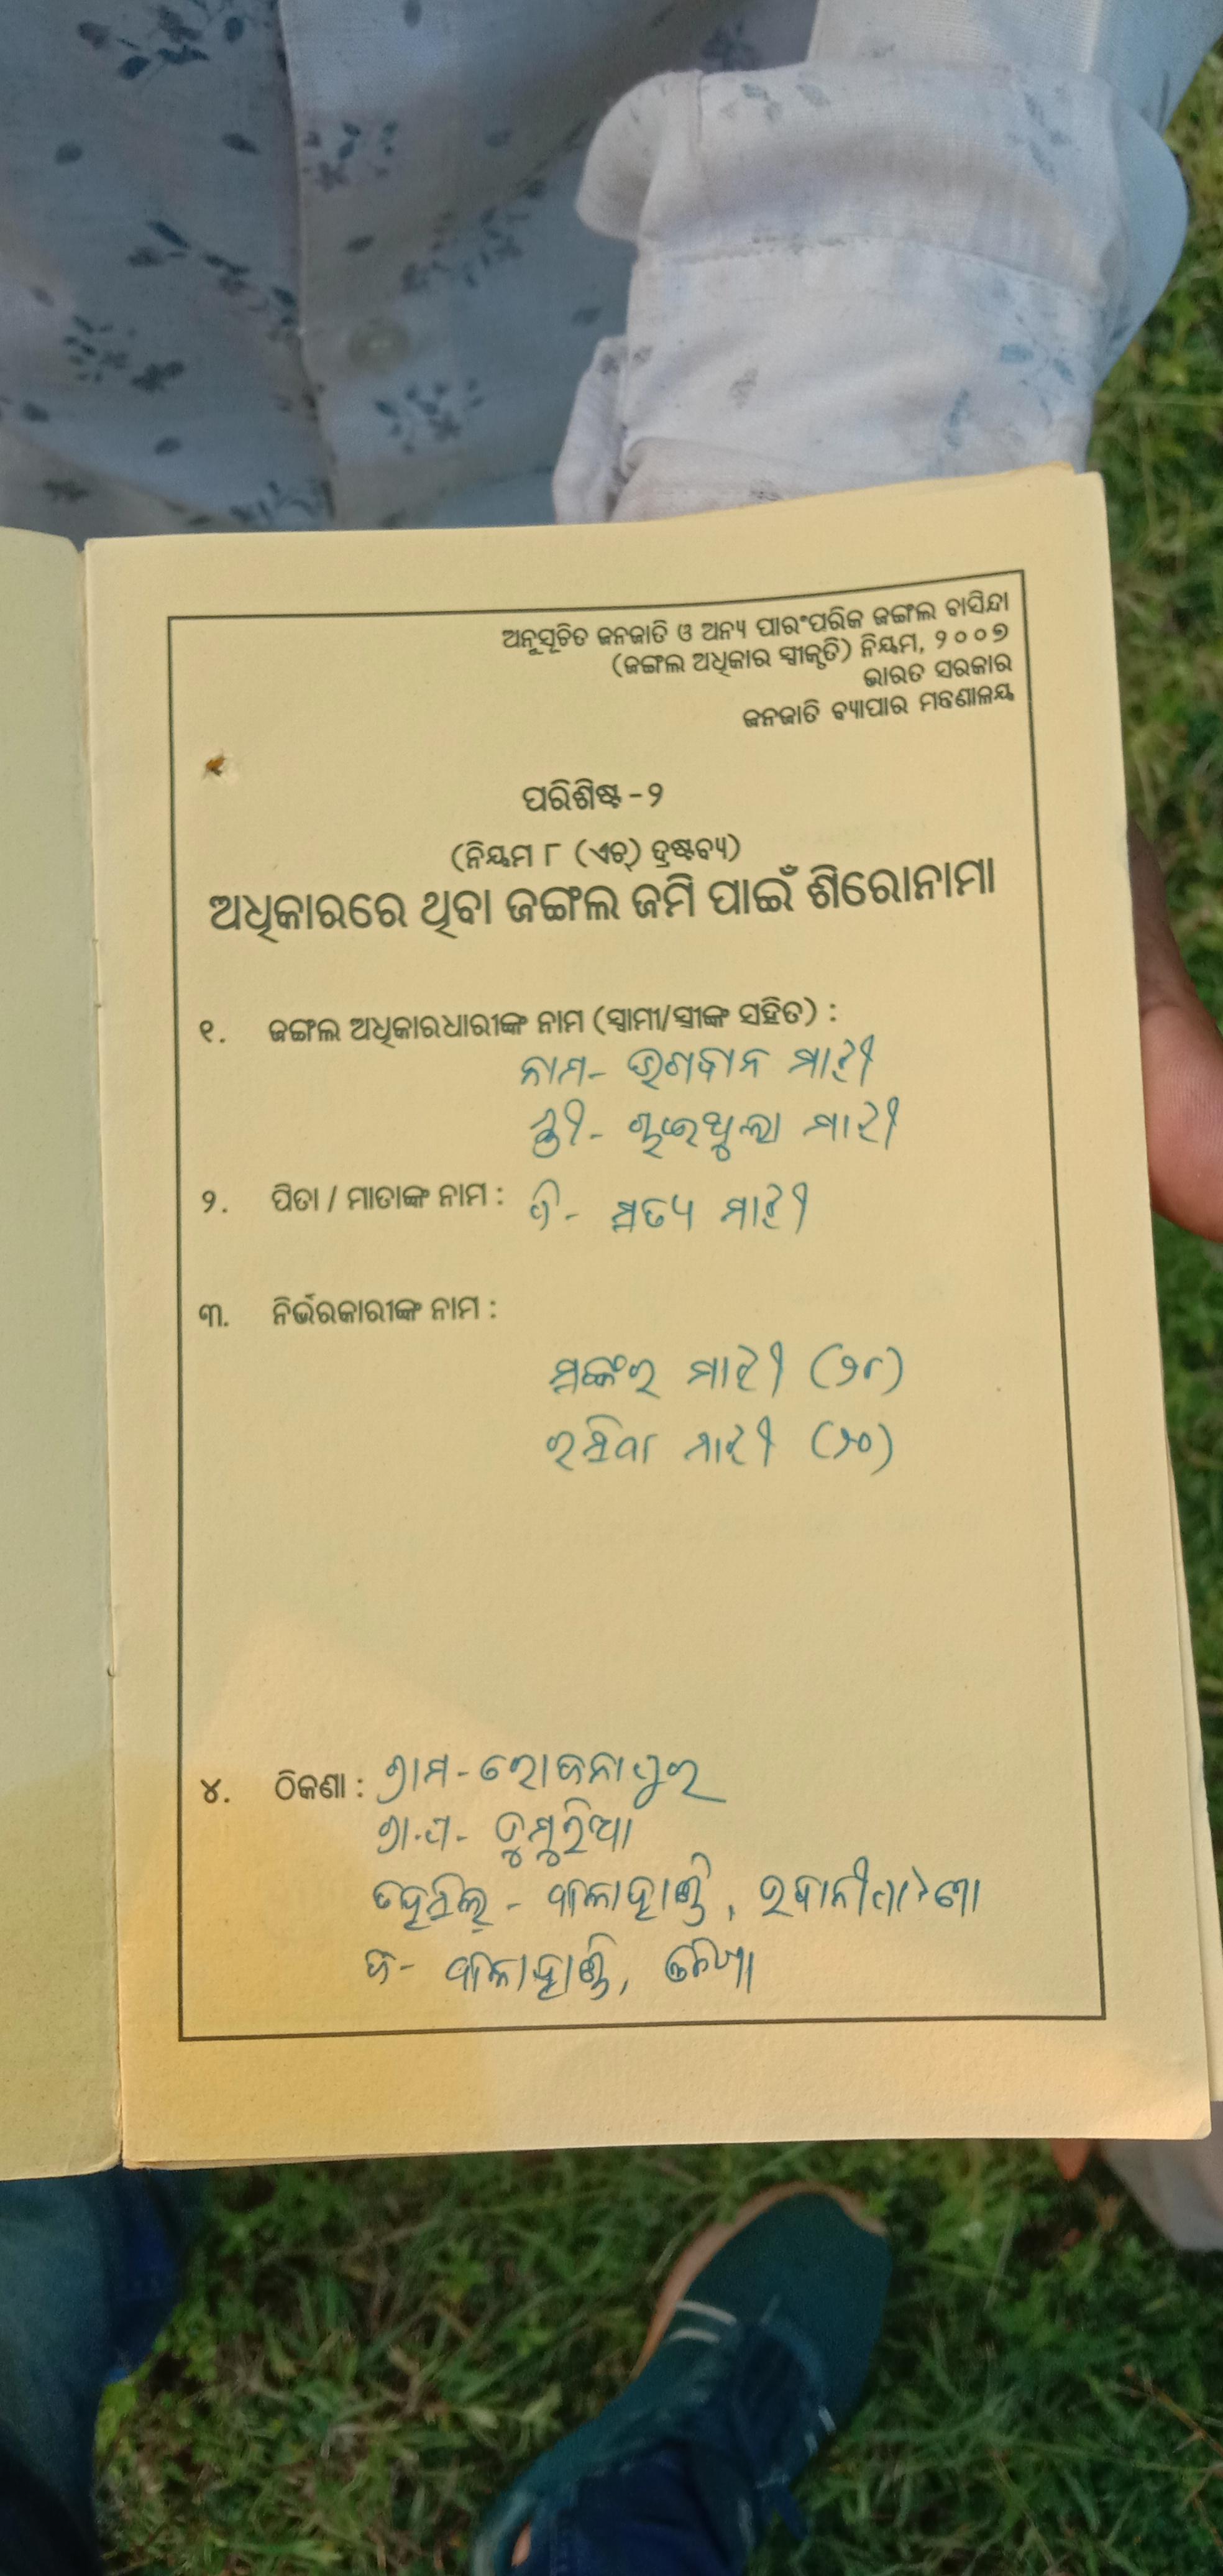 ଅନୁସୂଚିତ ଜନଜାତି ଓ ଅନ୍ୟ ପାରଂପରିକ ଜଙ୍ଗଲ ବାସିନ୍ଦା
(ଜଙ୍ଗଲ ଅଧିକାର ସ୍ୱୀକୃତି) ନିୟମ, ୨୦୦୭
ଭାରତ ସରକାର
ଜନଜାତି ବ୍ୟାପାର ମନ୍ତ୍ରଣାଳୟ
ପରିଶିଷ୍ଟ - ୨
(ନିୟମ ୮ (ଏଚ୍) ଦ୍ରଷ୍ଟବ୍ୟ)
ଅଧିକାରରେ ଥିବା ଜଙ୍ଗଲ ଜମି ପାଇଁ ଶିରୋନାମା
୧. ଜଙ୍ଗଲ ଅଧିକାରଧାରୀଙ୍କ ନାମ (ସ୍ୱାମୀ/ସ୍ତ୍ରୀଙ୍କ ସହିତ) :
ନାମ- ଭଗବାନ ମାଝୀ
ସ୍ତ୍ରୀ- ମାଝୀ
୨. ପିତା / ମାତାଙ୍କ ନାମ : ପି- ସତ୍ୟ ମାଝୀ
୩. ନିର୍ଭରକାରୀଙ୍କ ନାମ :
ଶଙ୍କର ମାଝୀ (୨୮)
ମାଝୀ (୨୦)
୪. ଠିକଣା : ଗ୍ରାମ-
ଗ୍ରା.ପ- ଡୁମୁରିଆ
ତହସିଲ୍ - କଳାହାଣ୍ଡି, ଭବାନୀପାଟଣା
ଜି- କଳାହାଣ୍ଡି, ଓଡିଶା